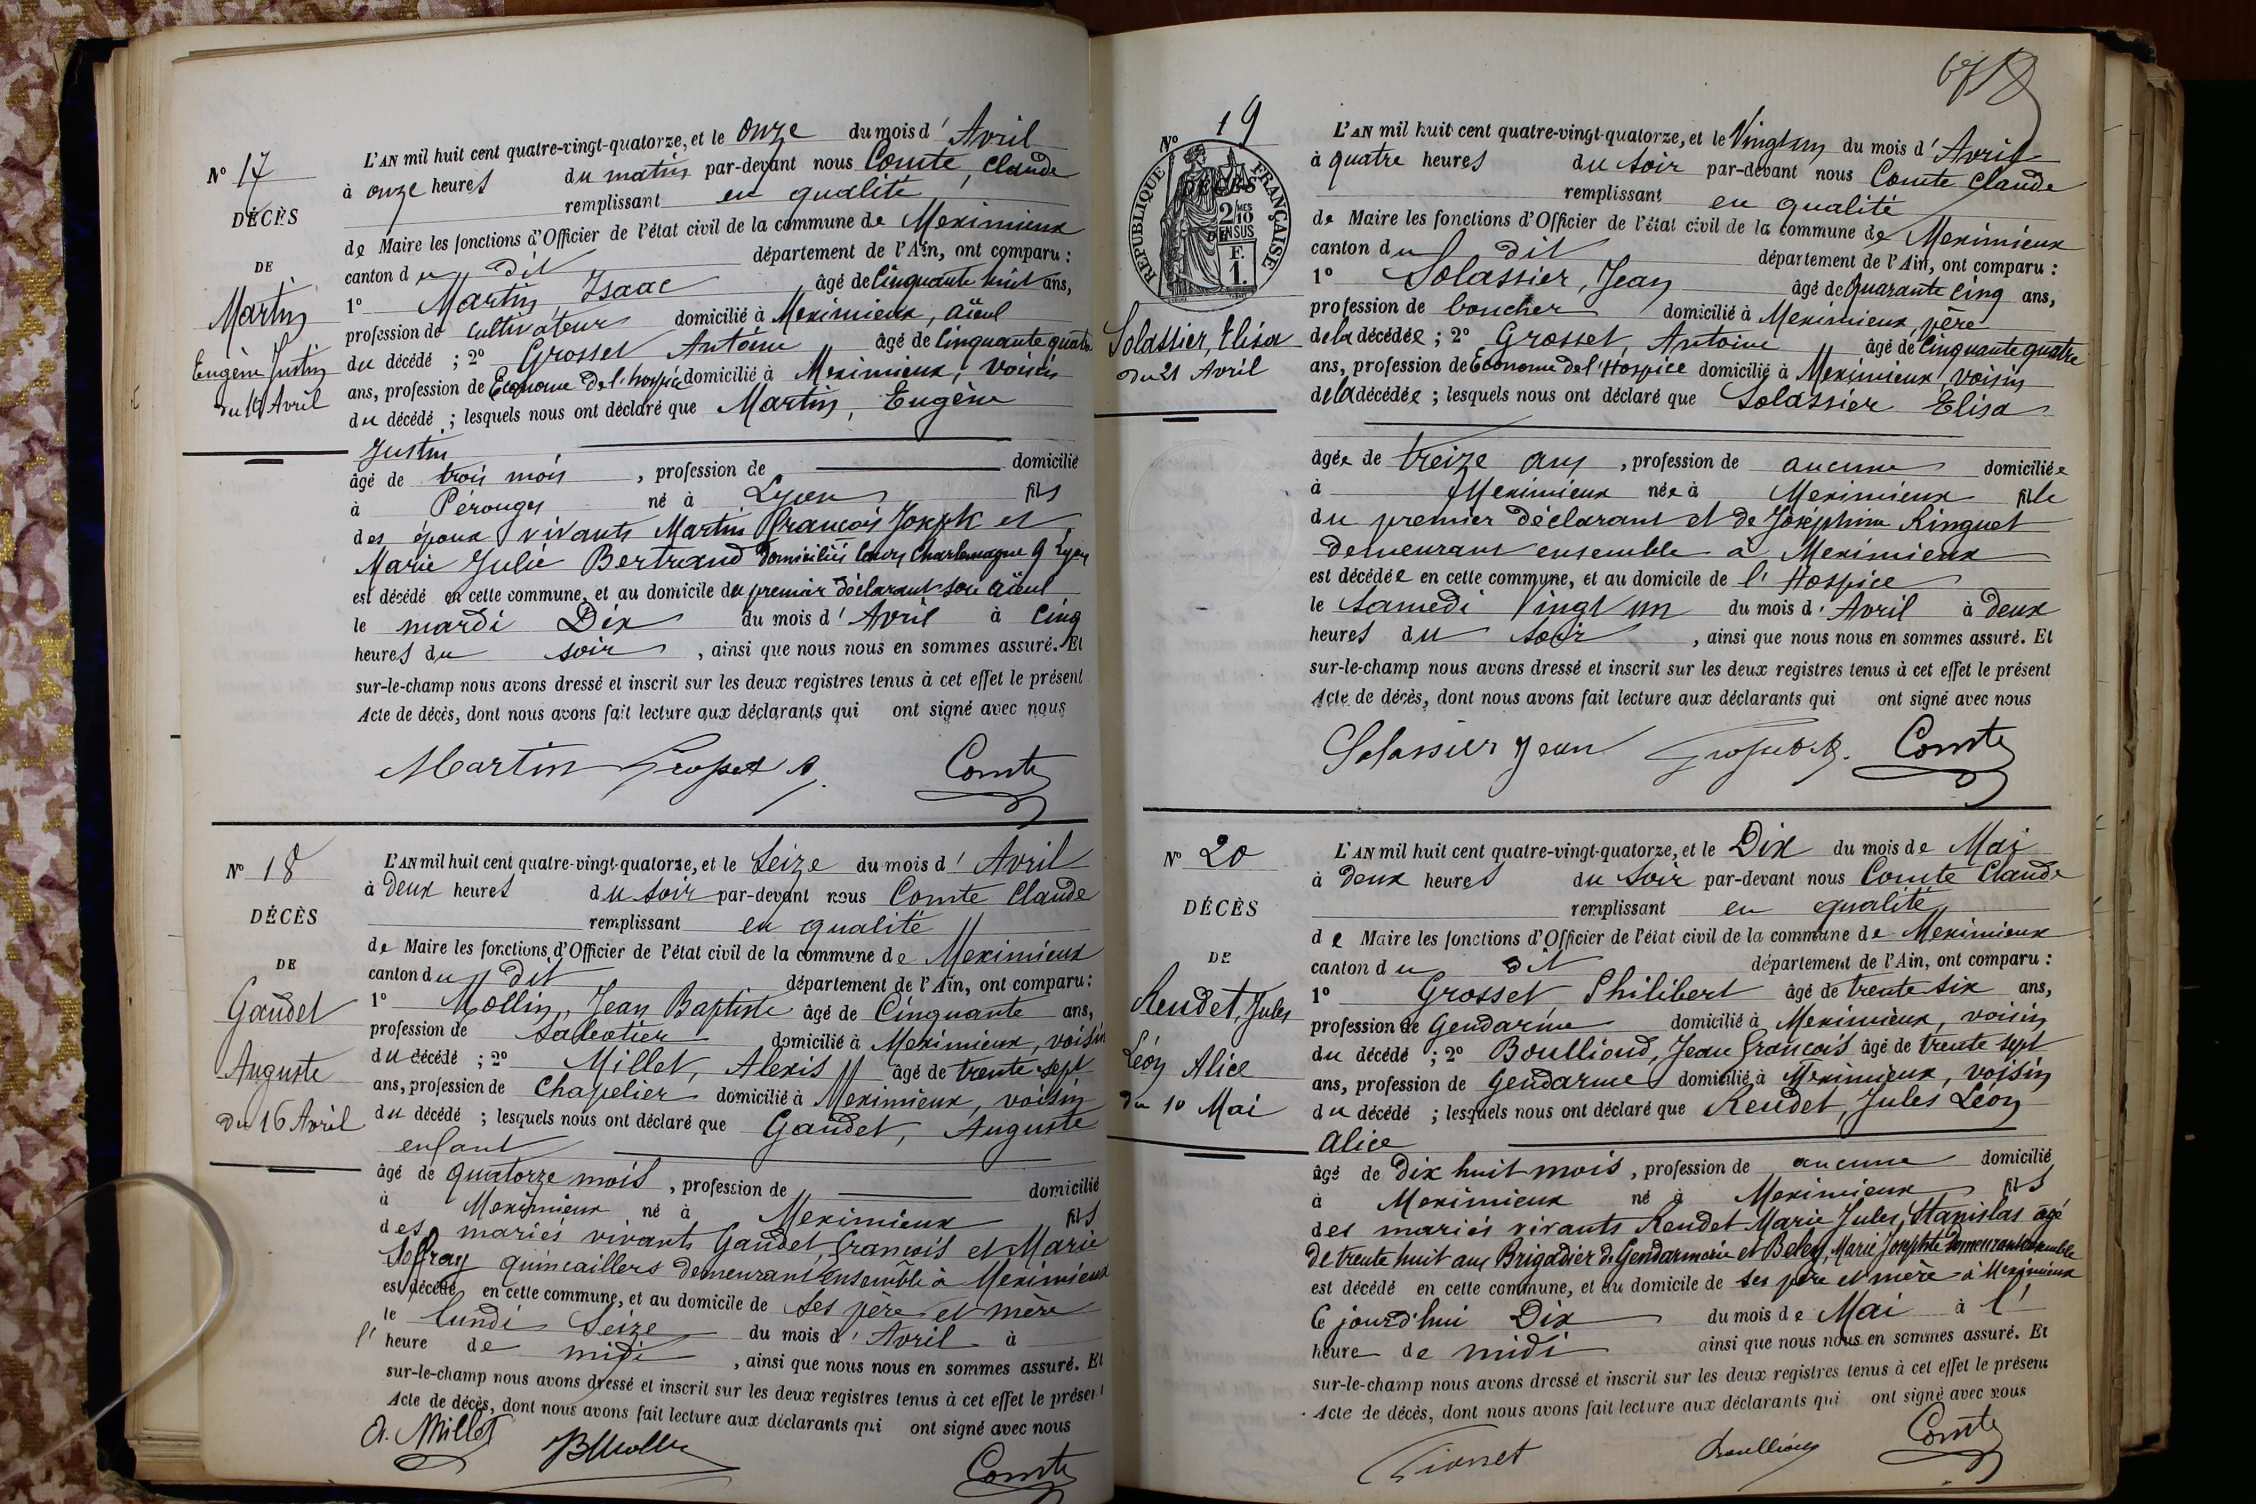 Nº 17
DÉCÈS
DE
Martin
Eugène Justin
du 10 Avril
L'AN mil huit cent quatre-vingt-quatorze, et le onze du mois d' Avril
à onze heures du matin par-devant nous Comte, Claude
remplissant en qualité
de Maire les fonctions d'Officier de l'état civil de la commune de Meximieux
canton du dit département de l'Ain, ont comparu :
1º Martin Isaac âgé de Cinquante huit ans,
profession de cultivateur domicilié à Meximieux, aïeul
du décédé ; 2º Grosset Antoine âgé de Cinquante quatre
ans, profession de Econome de l'hospice domicilié à Meximieux, voisin
du décédé ; lesquels nous ont déclaré que Martin, Eugène
Justin
âgé de trois mois , profession de domicilié
à Pérouges né à Lyon fils
des époux vivants Martin François Joseph et
Marie Julie Bertrand domiciliés Cours Charlemagne 9 Lyon
est décédé en cette commune, et au domicile du premier déclarant son aïeul
le mardi Dix du mois d' Avril à Cinq
heures du soir , ainsi que nous nous en sommes assuré. Et
sur-le-champ nous avons dressé et inscrit sur les deux registres tenus à cet effet le présent
Acte de décès, dont nous avons fait lecture aux déclarants qui ont signé avec nous
Martin Grosset A. Comte
Nº 18
DÉCÈS
DE
Gaudet
Auguste
Du 16 Avril
L'AN mil huit cent quatre-vingt-quatorze, et le Seize du mois d' Avril
à deux heures du soir par-devant nous Comte Claude
remplissant en qualité
de Maire les fonctions d'Officier de l'état civil de la commune de Meximieux
canton du dit département de l'Ain, ont comparu :
1º Mollin, Jean Baptiste âgé de Cinquante ans,
profession de Sabotier domicilié à Meximieux, voisin
du décédé ; 2º Millet, Alexis âgé de trente-sept
ans, profession de Chapelier domicilié à Meximieux, voisin
du décédé ; lesquels nous ont déclaré que Gaudet, Auguste
enfant
âgé de quatorze mois , profession de domicilié
à Meximieux né à Meximieux fils
des mariés vivants Gaudet, François et Marie
quincaillers demeurant ensemble à Meximieux
est décédé en cette commune, et au domicile de ses père et mère
le lundi Seize du mois d' Avril à
l' heure de midi , ainsi que nous nous en sommes assuré. Et
sur-le-champ nous avons dressé et inscrit sur les deux registres tenus à cet effet le présent
Acte de décès, dont nous avons fait lecture aux déclarants qui ont signé avec nous
A. Millet JBMollin Comte
Nº 19
RÉPUBLIQUE FRANÇAISE
DÉCÈS
2/10 MES
EN SUS
DE
F.
1.
Solassier, Elisa
du 21 Avril
L'AN mil huit cent quatre-vingt-quatorze, et le Vingt un du mois d' Avril
à quatre heures du soir par-devant nous Comte Claude
remplissant en qualité
de Maire les fonctions d'Officier de l'état civil de la commune de Meximieux
canton du dit département de l'Ain, ont comparu :
1º Solassier, Jean âgé de Quarante cinq ans,
profession de boucher domicilié à Meximieux, père
de la décédée ; 2º Grosset, Antoine âgé de Cinquante quatre
ans, profession de Econome de l'Hospice domicilié à Meximieux, voisin
de la décédée ; lesquels nous ont déclaré que Solassier Elisa
âgée de treize ans , profession de aucune domiciliée
à Meximieux née à Meximieux fille
du premier déclarant et de Joséphine Ringuet
demeurant ensemble à Meximieux
est décédée en cette commune, et au domicile de l' Hospice
le Samedi Vingt un du mois d' Avril à deux
heures du soir , ainsi que nous nous en sommes assuré. Et
sur-le-champ nous avons dressé et inscrit sur les deux registres tenus à cet effet le présent
Acte de décès, dont nous avons fait lecture aux déclarants qui ont signé avec nous
Solassier Jean Grosset A. Comte
Nº 20
DÉCÈS
DE
Rendet, Jules
Léon Alice
du 10 Mai
L'AN mil huit cent quatre-vingt-quatorze, et le Dix du mois de Mai
à deux heures du soir par-devant nous Comte Claude
remplissant en qualité
de Maire les fonctions d'Officier de l'état civil de la commune de Meximieux
canton du dit département de l'Ain, ont comparu :
1º Grosset Philibert âgé de trente six ans,
profession de Gendarme domicilié à Meximieux, voisin
du décédé ; 2º Boulliond, Jean François âgé de trente sept
ans, profession de Gendarme domicilié à Meximieux, voisin
du décédé ; lesquels nous ont déclaré que Rendet, Jules Léon
Alice
âgé de Dix huit mois , profession de aucune domicilié
à Meximieux né à Meximieux fils
des mariés vivants Rendet Marie Jules, Stanislas âgé
de trente huit ans Brigadier de Gendarmerie et Beley, Marie Josephte demeurant ensemble
est décédé en cette commune, et au domicile de ses père et mère à Meximieux
le jourd'hui Dix du mois de Mai à l'
heure de midi ainsi que nous nous en sommes assuré. Et
sur-le-champ nous avons dressé et inscrit sur les deux registres tenus à cet effet le présent
Acte de décès, dont nous avons fait lecture aux déclarants qui ont signé avec nous
Comte